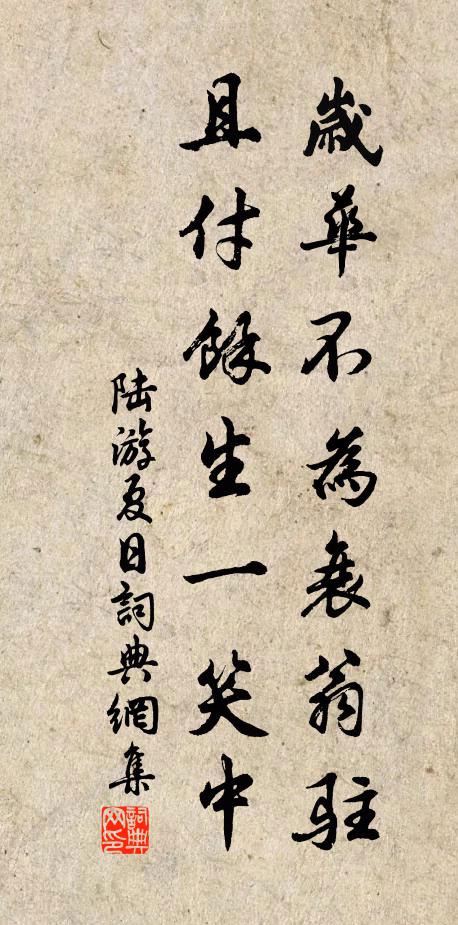 歲華不為衰翁駐
且付餘生一笑中
陆游夏日詞典網集
詞典
网印